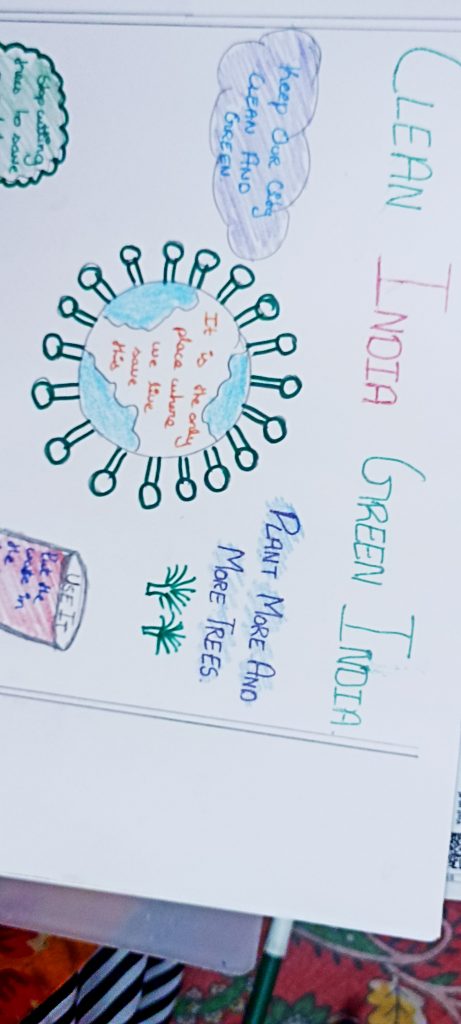 CLEAN INDIA GREEN INDIA
Keep OUR City
CLEAN AND
GREEN
It is the only
place where
we live
save
this
PLANT MORE AND
MORE TREES.
Stop cutting
trees to save
USE IT
Put the
waste in
the